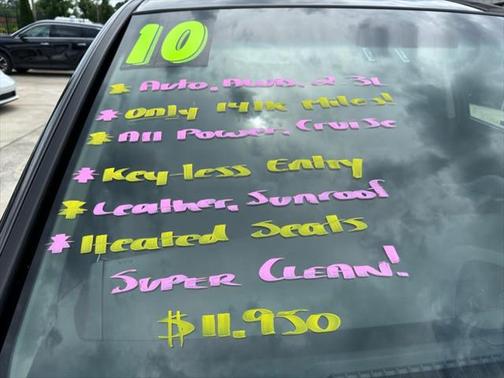 10
* Auto, AWD, 2.3L
* Only 141k Miles!
* All Power, Cruise
* Key-less Entry
* Leather, Sunroof
* Heated Seats
Super Clean!
$11,930